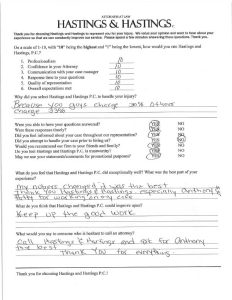 ATTORNEYS AT LAW
HASTINGS & HASTINGS
Thank you for choosing Hastings and Hastings to represent you for your injury. We value your opinion and want to hear about your
experience so that we can constantly improve our service. Please spend a few minutes answering these questions. Thank you.
On a scale of 1-10, with "10" being the highest and "1" being the lowest, how would you rate Hastings and
Hastings, P.C.?
1. Professionalism 10
2. Confidence in your Attorney 10
3. Communication with your case manager 10
4. Response time to your questions 10
5. Quality of representation 10
6. Overall expectations met 10
Why did you select Hastings and Hastings P.C. to handle your injury?
Because you guys charge
charge
Were you able to have your questions answered? YES NO
Were these responses timely? YES NO
Did you feel informed about your case throughout our representation? YES NO
Did you attempt to handle your case prior to hiring us? YES NO
Would you recommend our firm to your family and friends? YES NO
Do you feel Hastings and Hastings P.C. is trustworthy? YES NO
May we use your statements/comments for promotional purposes? YES NO
What do you feel that Hastings and Hastings, P.C. did exceptionally well? What was the best part of your
experience?
my it was the best
Thank you Hastings & Hastings especially Anthony &
for working on my case
What do you think that Hastings and Hastings P.C. could improve upon?
Keep up the good work
What would you say to someone who is hesitant to call an attorney?
Call Hastings & Hastings and ask for Anthony
the best
Thank you for everything
Thank you for choosing Hastings and Hastings P.C.!